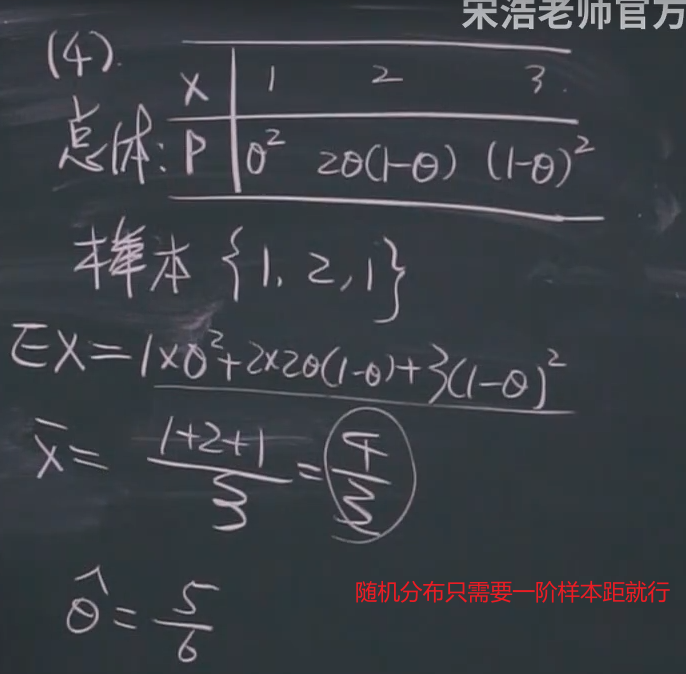 宋浩老师官方
(4).
X 1 2 3.
总体: P θ² 2θ(1-θ) (1-θ)²
样本 {1, 2, 1}
EX=1×θ²+2×2θ(1-θ)+3(1-θ)²
x̄= 1+2+1/3 = 4/3
随机分布只需要一阶样本距就行
θ̂= 5/6